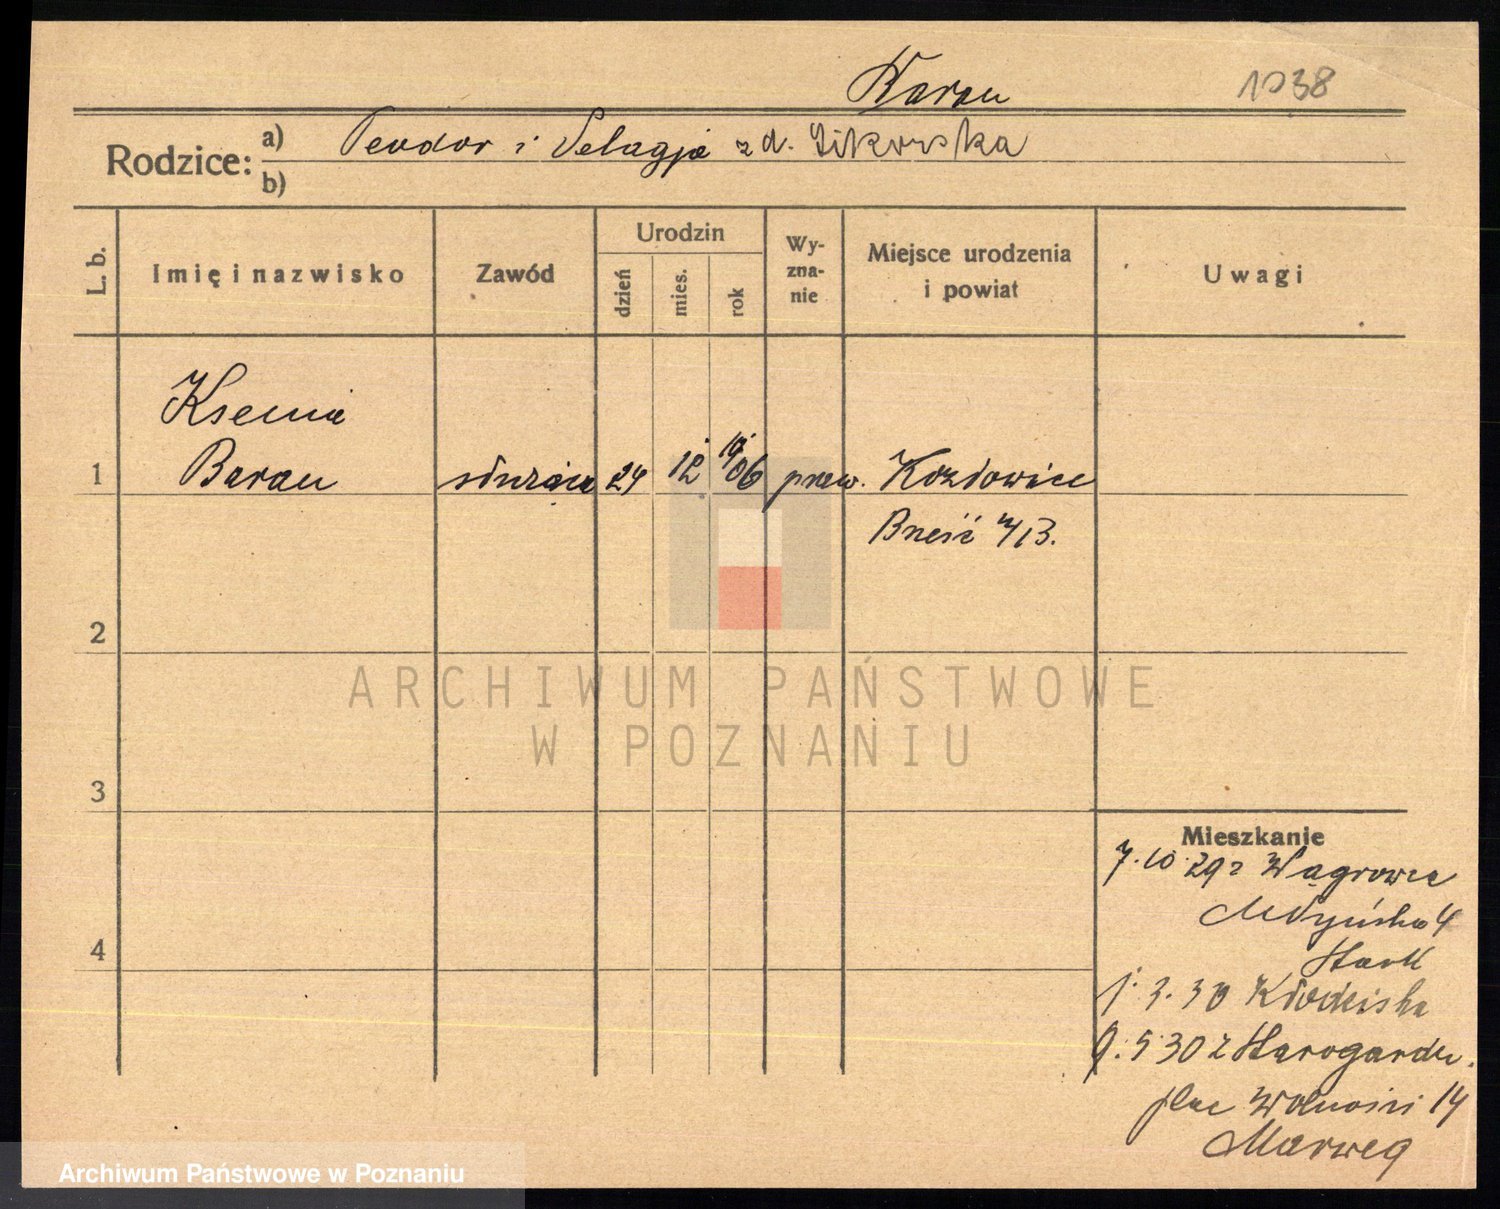 Baran
1038
Rodzice: a) Teodor i Pelagja z d. Sikorska
b)
L. b.
Imię i nazwisko
Zawód
Urodzin
dzień
mies.
rok
Wy-
zna-
nie
Miejsce urodzenia
i powiat
Uwagi
Ksenia
1 Baran służąca 24 12 1906 praw. Kozłowice
Brześć n/B.
2
ARCHIWUM PAŃSTWOWE
W POZNANIU
3
Mieszkanie
7.10.29 z Wągrowca
Młyńska 4
4
1.3.30 Kłodziska
9.5.30 z Starogardu.
plac Wolności 14
Marweg
Archiwum Państwowe w Poznaniu